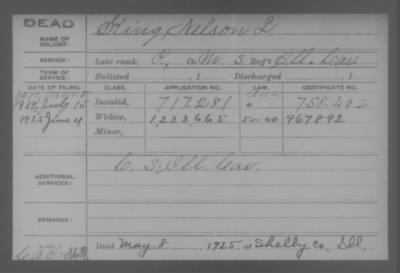 DEAD
NAME OF SOLDIER: King, Nelson L.
SERVICE: Late rank, P, Co. M, 3 Reg't Ill. Cav.
TERM OF SERVICE: Enlisted , 1 Discharged , 1
DATE OF FILING. CLASS. APPLICATION NO. LAW. CERTIFICATE NO.
July 15 Invalid, 717.281 758.402
1925 June 4 Widow, 1,233,665 967892
Minor,
ADDITIONAL SERVICES: C. 3 Ill Cav.
REMARKS:
Died May 8, 1925, at Shelby Co, Ill.